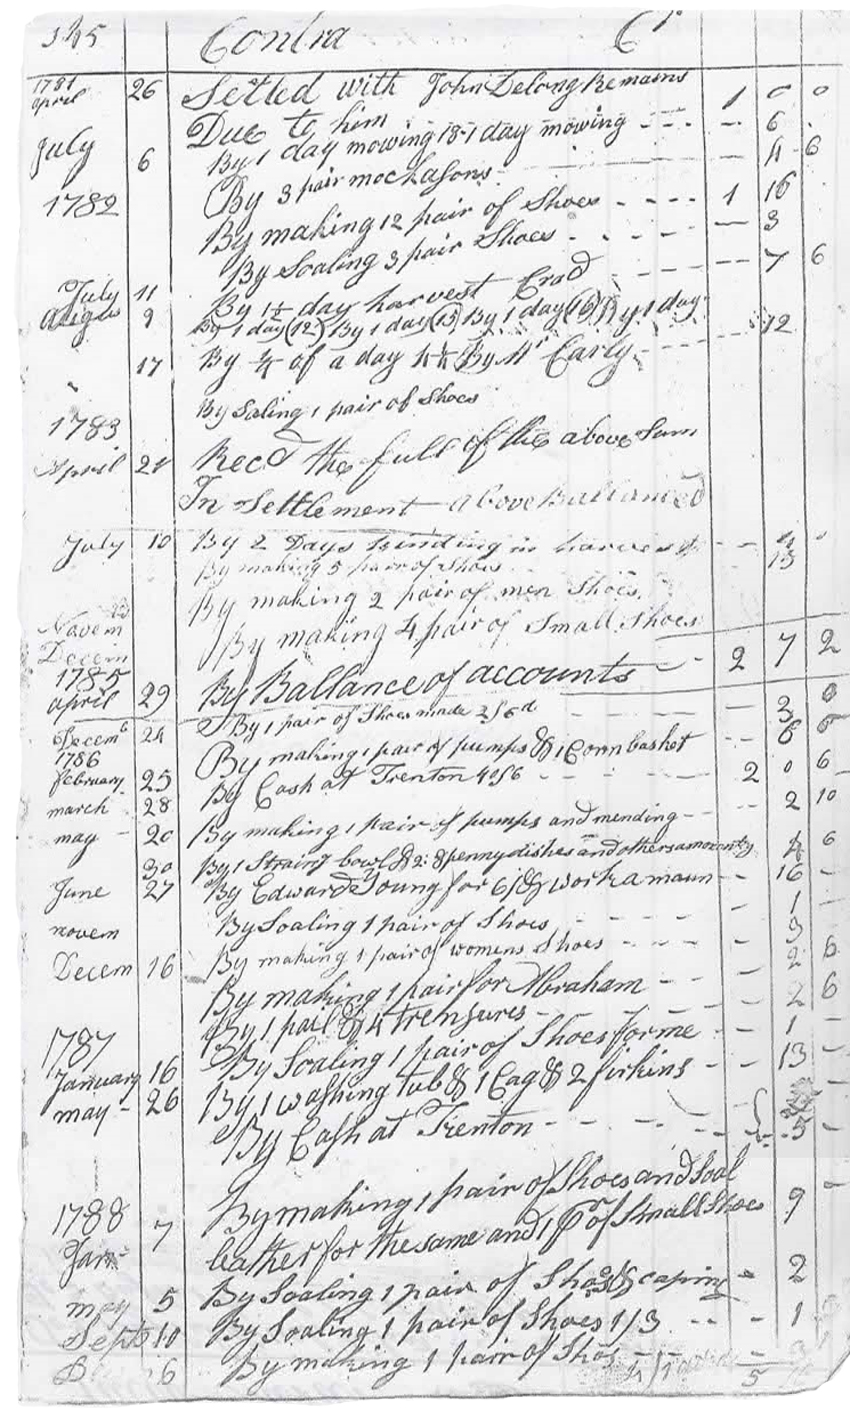 Contra Cr
1781 April 26 Settled with John Delong Remains
Due to him - 1 0 0
July 6 By 1 day mowing 18-1 day mowing - - - 6
1782 By 3 pair mockasons - 4 6
By making 12 pair of Shoes - - - - 1 16
By Soaling 3 pair Shoes - - - 3
July 11 By 1½ day harvest Crad - - - 7 6
Augus 9 By 1 day (12) By 1 day (15) By 1 day (16) By 1 day 12
17 By ¼ of a day By Mr Early - - -
By Saling 1 pair of Shoes
1783
April 21 Recd the full of the above Sum
In Settlement above Ballanced
July 10 By 2 Days binding in harvest - - 4
By making 5 pair of Shoes 15
By making 2 pair of men Shoes
Novem By making 4 pair of Small Shoes
Decem
1785 2 7 2
April 29 By Ballance of accounts
Decemb 24 By 1 pair of Shoes made 2s 6d - - - 3 0
1786 By making 1 pair of pumps & 1 Corn basket - - 6 6
February 25 By Cash at Trenton 40s6 - - - 2 0 6
march 28 2 10
may - 20 By making 1 pair of pumps and mending - - - 4 6
30 By 1 Straing bowl & 2: 8 penny dishes and others
June 27 By Edward Young for 6/ & work a maun - - 16 -
novem By Soaling 1 pair of Shoes - - - 1 -
Decem 16 By making 1 pair of womens Shoes - - - 3
By making 1 pair for Abraham - - - 2 6
By 1 pail & 4 trensures - - 2 6
1787 By Soaling 1 pair of Shoes for me - - 1 -
January 16 By 1 washing tub & 1 Cag & 2 firkins - - 13 -
may - 26 By Cash at Trenton - - - 5 -
1788 By making 1 pair of Shoes and Soal
Jan 7 leather for the same and 1 pr of Small Shoes 9 -
may 5 By Soaling 1 pair of Shoes & caping - 2
Sept 10 By Soaling 1 pair of Shoes 1/3 - - - 1
6 By making 1 pair of Shos
5